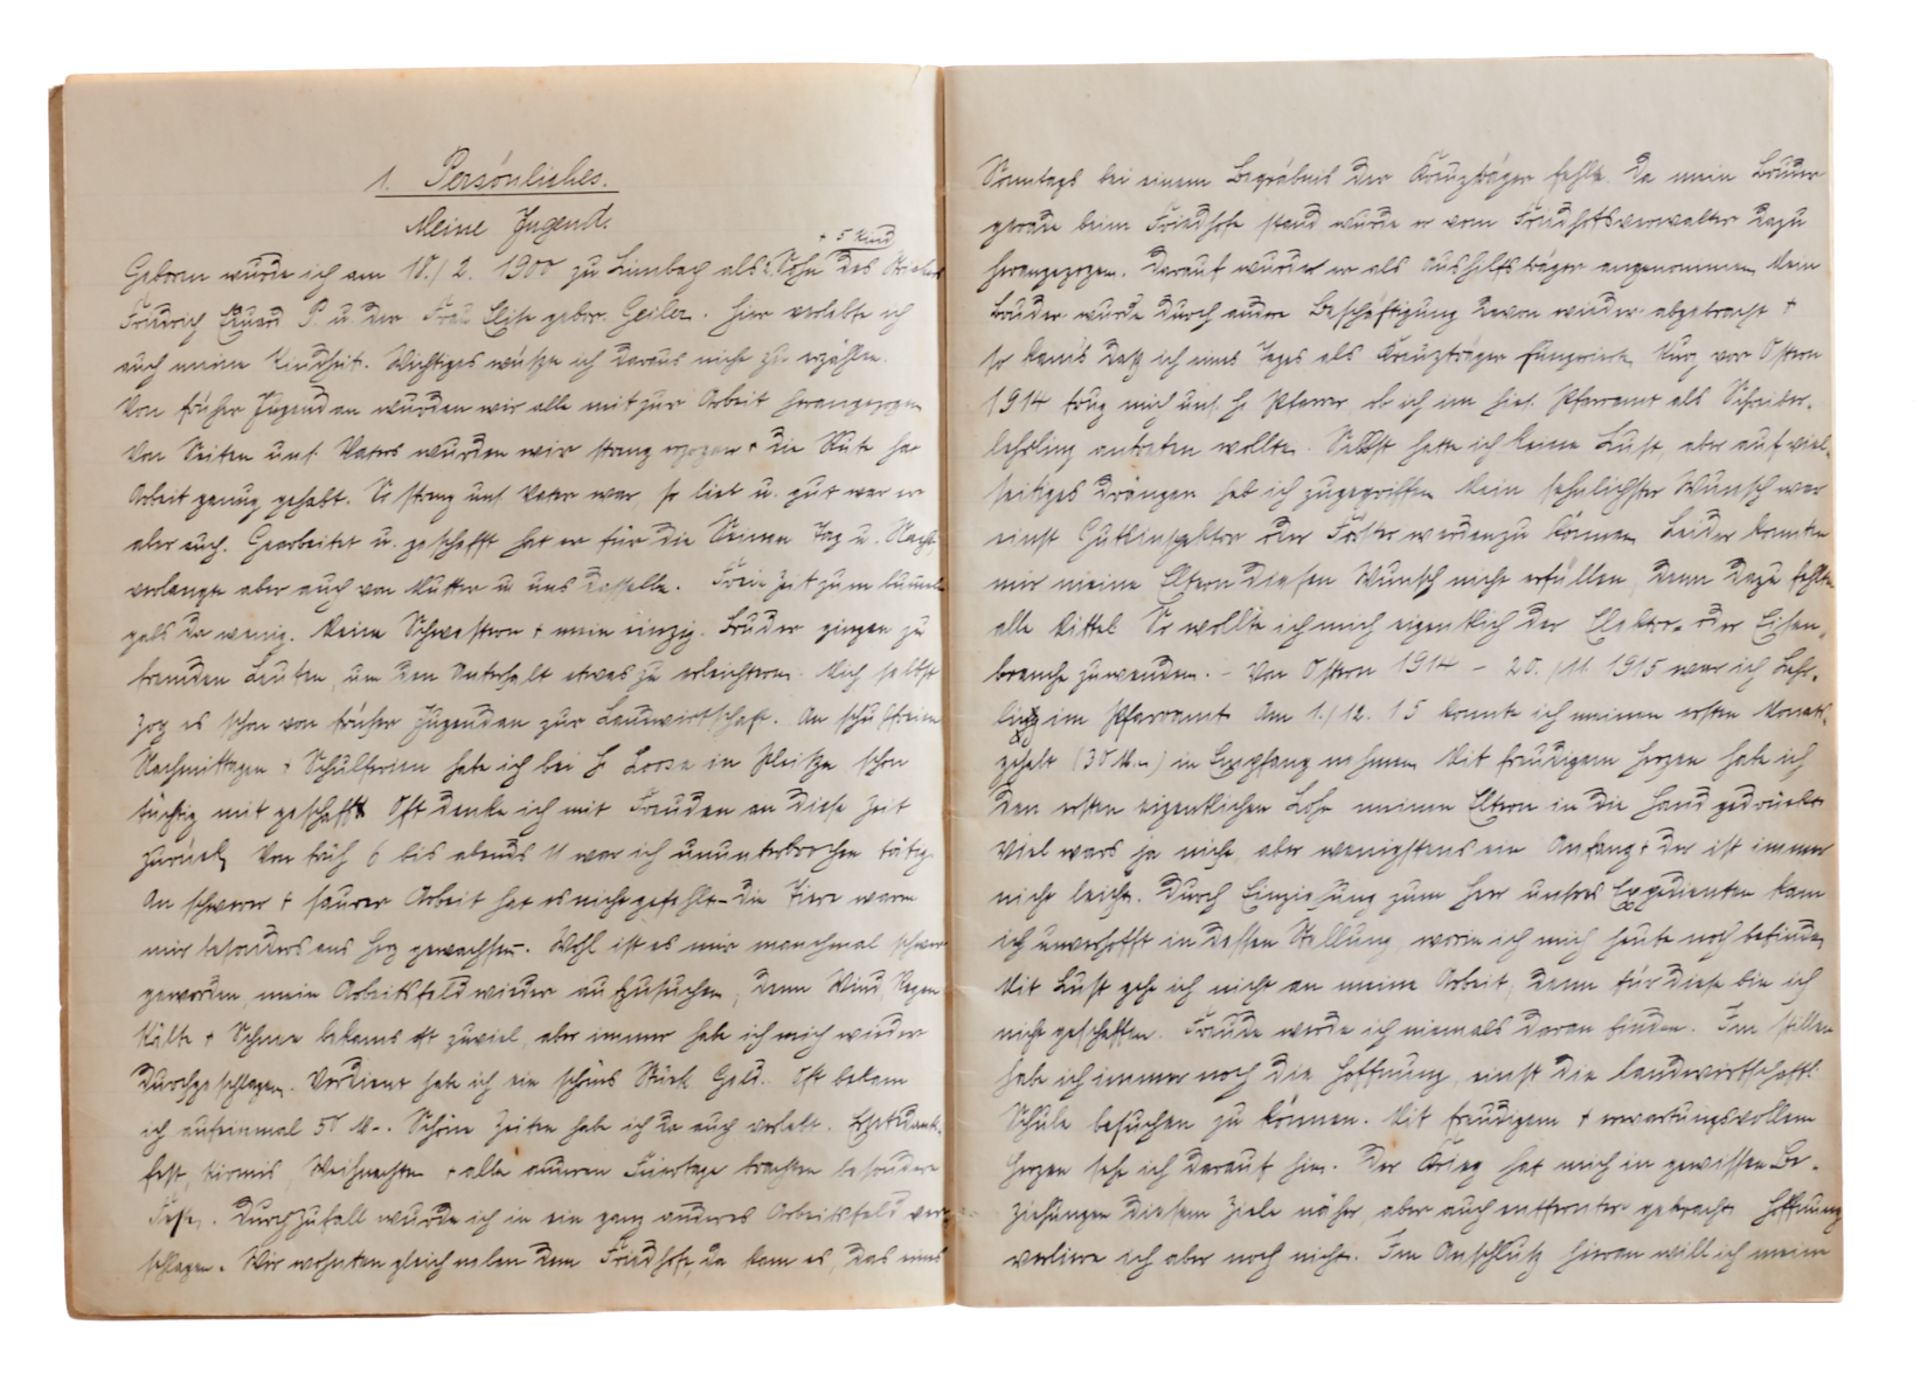 1. Persönliches.
Meine Jugend.
+ 5 Kind
Geboren wurde ich am 18./2. 1900 zu Limbach als 2. Sohn des
Friedrich Eduard P. u. der Frau Elise gebor. Geiler. Hier verlebte ich
auch meine Kindheit. Wichtiges wüßte ich daraus nicht zu erzählen.
Von früher Jugend an wurden wir alle mit zur Arbeit herangezogen
Von Seiten uns. Vaters wurden wir streng erzogen + die Rute hat
Arbeit genug gehabt. So streng uns. Vater war, so lieb u. gut war er
aber auch. Gearbeitet u. geschafft hat er für die Seinen Tag u. Nacht
verlangte aber auch von Mutter u. uns dasselbe. Freie Zeit zum
gabs da wenig. Meine Schwestern + mein einzig. Bruder gingen zu
fremden Leuten, um den Unterhalt etwas zu erleichtern. Mich selbst
zog es schon von früher Jugend an zur Landwirtschaft. An schulfreien
Nachmittagen + Schulferien habe ich bei H. Loose in Pleißa schon
tüchtig mit geschafft Oft denke ich mit Freuden an diese Zeit
zurück. Von früh 6 bis abends 11 war ich ununterbrochen tätig.
An schwerer + saurer Arbeit hat es nicht gefehlt – die Tiere waren
mir besonders ans Herz gewachsen. Wohl ist es mir manchmal schwer
geworden, mein Arbeitsfeld wieder aufzusuchen, denn Wind, Regen
Kälte + Schnee bekams oft zuviel, aber immer habe ich mich wieder
durchgeschlagen. Verdient habe ich ein schönes Stück Geld. Oft bekam
ich aufeinmal 50 M.-. Schöne Zeiten habe ich da auch verlebt. Erntedank-
fest, Kirmis, Weihnachten + alle anderen Feiertage brachten besondere
Feste. Durch Zufall wurde ich in ein ganz anderes Arbeitsfeld ver-
schlagen. Wir wohnten gleich neben dem Friedhofe, da kam es, das eines
Sonntags bei einem Begräbnis der Kreuzträger fehlte. Da mein Bruder
gerade beim Friedhofe stand wurde er vom Friedhofsverwalter dazu
herangezogen. Darauf wurde er als Aushilfsträger angenommen. Mein
Bruder wurde durch andere Beschäftigung davon wieder abgebracht +
so kam's daß ich eines Tages als Kreuzträger fungierte. Kurz vor Ostern
1914 frug mich uns. H. Pfarrer, ob ich im hies. Pfarramt als Schreiber-
lehrling antreten wollte. Selbst hatte ich keine Lust, aber auf viel-
seitiges Drängen hab ich zugegriffen. Mein sehnlichster Wunsch war
einst Gutsinspektor oder Förster werden zu können. Leider konnten
mir meine Eltern diesen Wunsch nicht erfüllen, denn dazu fehlten
alle Mittel. So wollte ich mich eigentlich der Elektro- oder Eisen-
branche zuwenden. – Von Ostern 1914 – 20./11. 1915 war ich Lehr-
ling im Pfarramt. Am 1./12. 15 konnte ich meinen ersten Monats-
gehalt (30 M.-) in Empfang nehmen. Mit freudigem Herzen habe ich
den ersten eigentlichen Lohn meinen Eltern in die Hand gedrückt.
Viel wars ja nicht, aber wenigstens ein Anfang + der ist immer
nicht leicht. Durch Einziehung zum Heer unsres Expedienten kam
ich unverhofft in dessen Stellung, worin ich mich heute noch befinde.
Mit Lust gehe ich nicht an meine Arbeit, denn für diese bin ich
nicht geschaffen. Freude werde ich niemals daran finden. Im stillen
habe ich immer noch die Hoffnung, einst die landwirtschaftl.
Schule besuchen zu können. Mit freudigem + erwartungsvollem
Herzen sehe ich darauf hin. Der Krieg hat mich in gewissen Be-
ziehungen diesem Ziele näher, aber auch entfernter gebracht. Hoffnung
verliere ich aber noch nicht. Im Anschluß hieran will ich meine